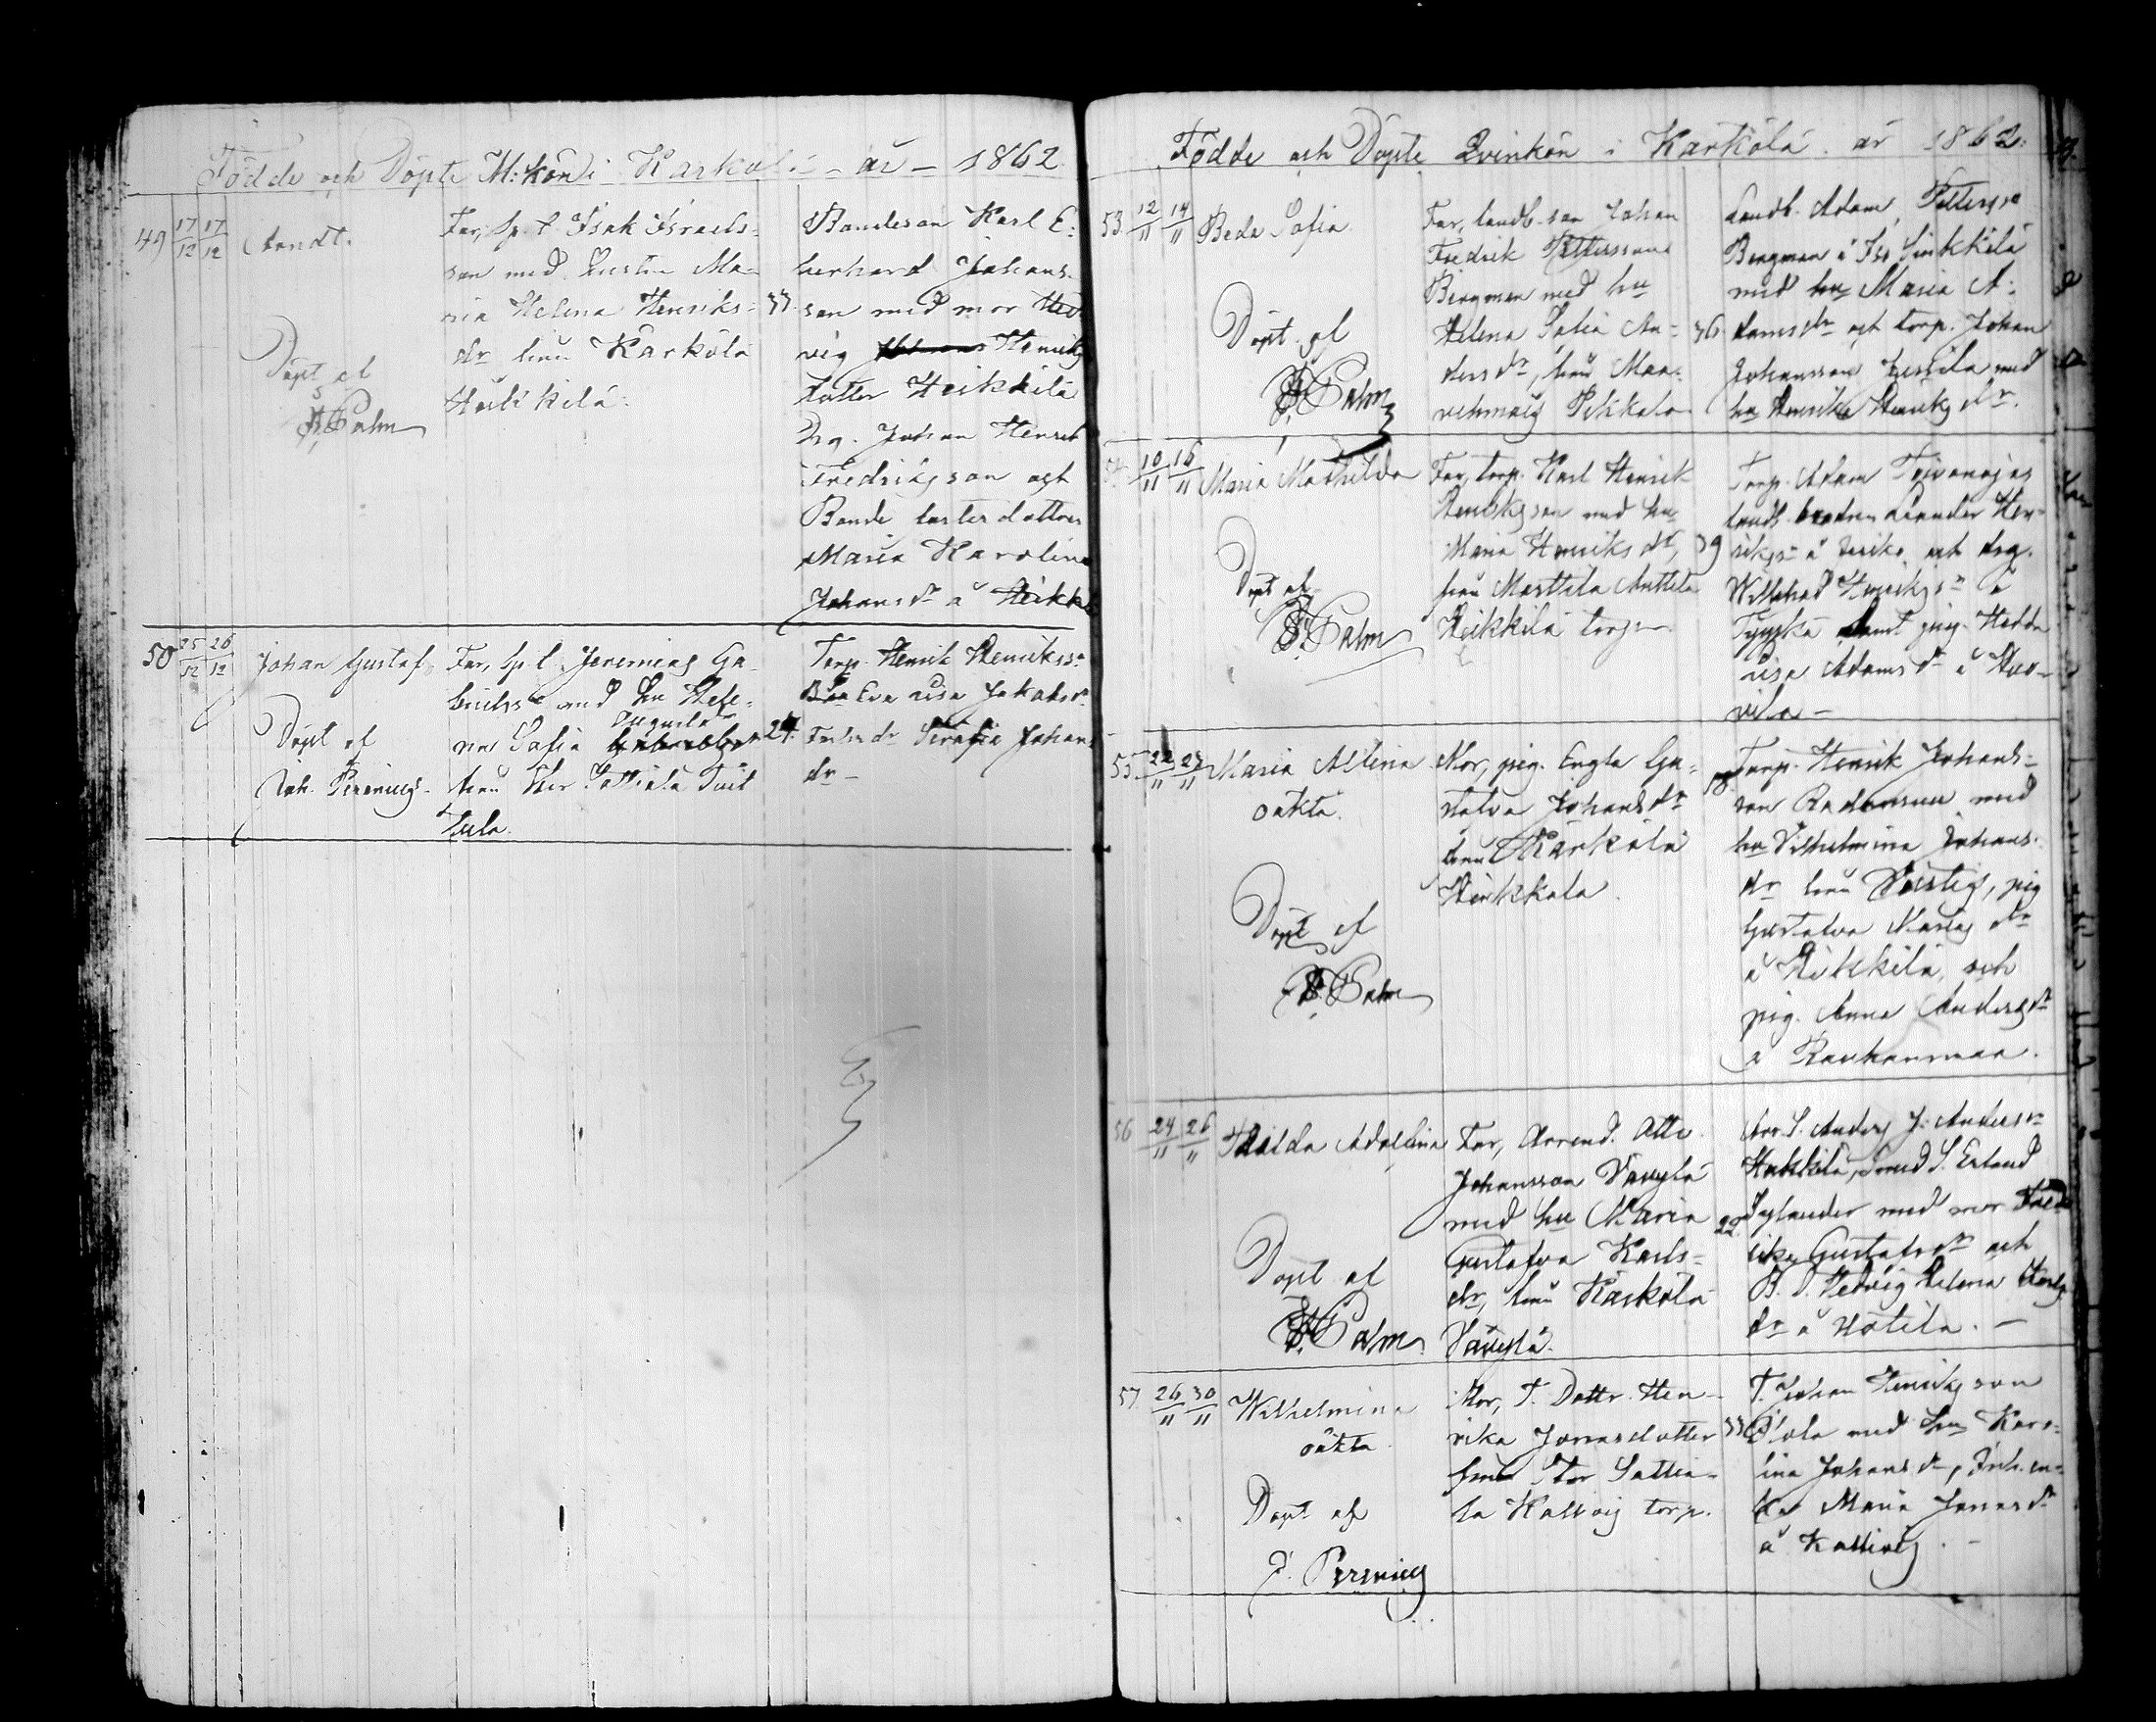 Födde och Döpte M:kön i Kärkölä år 1862
49 17/12 17/12
Arndt.
Döpt af
Palm
Far, Sp. t. Isak Israels-
son med hustru Ma-
ria Helena Henriks-
dr från Kärkölä
Heikkilä.
37.
Bondeson Karl E:
herhard Johans-
son med mor Hed
vig Henriks
dotter Heikkilä
Drg. Johan Henrik
Fredriksson och
Bonde dotter
Maria Karolina
Johansdr å Heikki
50 25/12 26/12
Johan Gustaf,
Döpt af
Joh. Perenius
Far, Sp. t. Jeremias Ga-
brielsson med hu Hele-
na Sofia Augusta
från Stor Sattiala Tuil
tula.
24.
Torp. Henrik Henrikss
Eva Lisa Jakobsdr
Serafia Johans
dr –
Födde och Döpte Qvinkön i Kärkölä år 1862.
53. 12/11 14/11
Beda Sofia
Döpt af
Palm
Far, landb. son Johan
Fredrik Pettersson
Bergman med hu
Helena Sofia An-
dersdr, från Maa-
vehmais Pekkala
36.
Landb. Adam Petterson
Bergman å Iso Sinkkilä
med hu Maria A:
damsdr och torp. Johan
Johansson Jussila med
hu Henrika Henriksdr.
10/11 16/11
Maria Mathilda
Döpt af
Palm
Far, torp. Karl Henrik
Henriksson med hu
Maria Henriksdr,
från Marttila Anttila
Heikkilä torp.
39
Torp. Adam Toivonojas
landb. brodern Leander Hen-
rikss å och drg.
Willehad Henrikss å
samt pig. Hedda
Lisa Adamsdr å Huo-
vila –
55. 22/11 23/11
Maria Allina
oäkta.
Döpt af
Palm
Mor, pig. Engla Gu-
stafva Johansdr
från Kärkölä
Heikkala.
18.
Torp. Henrik Johans-
son med
hu Vilhelmina Johans-
dr från, pig
Gustafva Mariasdr
å Heikkilä, och
pig. Anna Andersdr
å Rauhanmaa.
56 24/11 26/11
Hilda Adolfina
Döpt af
Palm
Far, Arrend. Otto
Johansson Väuylä
med hu Maria
Gustafva Karls-
dr, från Kärkölä
Väuylä.
22.
Arr. S. Anders J. Anderss
Hukkila, smed S. Erland
Sylander med mor Fred
rika Gustafsdr och
B. D. Hedvig Helena Henriks
dr å Hötilä. –
57. 26/11 30/11
Wilhelmina
oäkta.
Döpt af
J. Perenius
Mor, T. Dottr. Hen-
rika Jonasdotter
från Stor Sattia-
la Kallvig torp.
33
T. Johan Henriksson
Ojala med hu Karo-
lina Johansdr, Inh. en-
ka Maria Jonasdr
å Kallvig. –